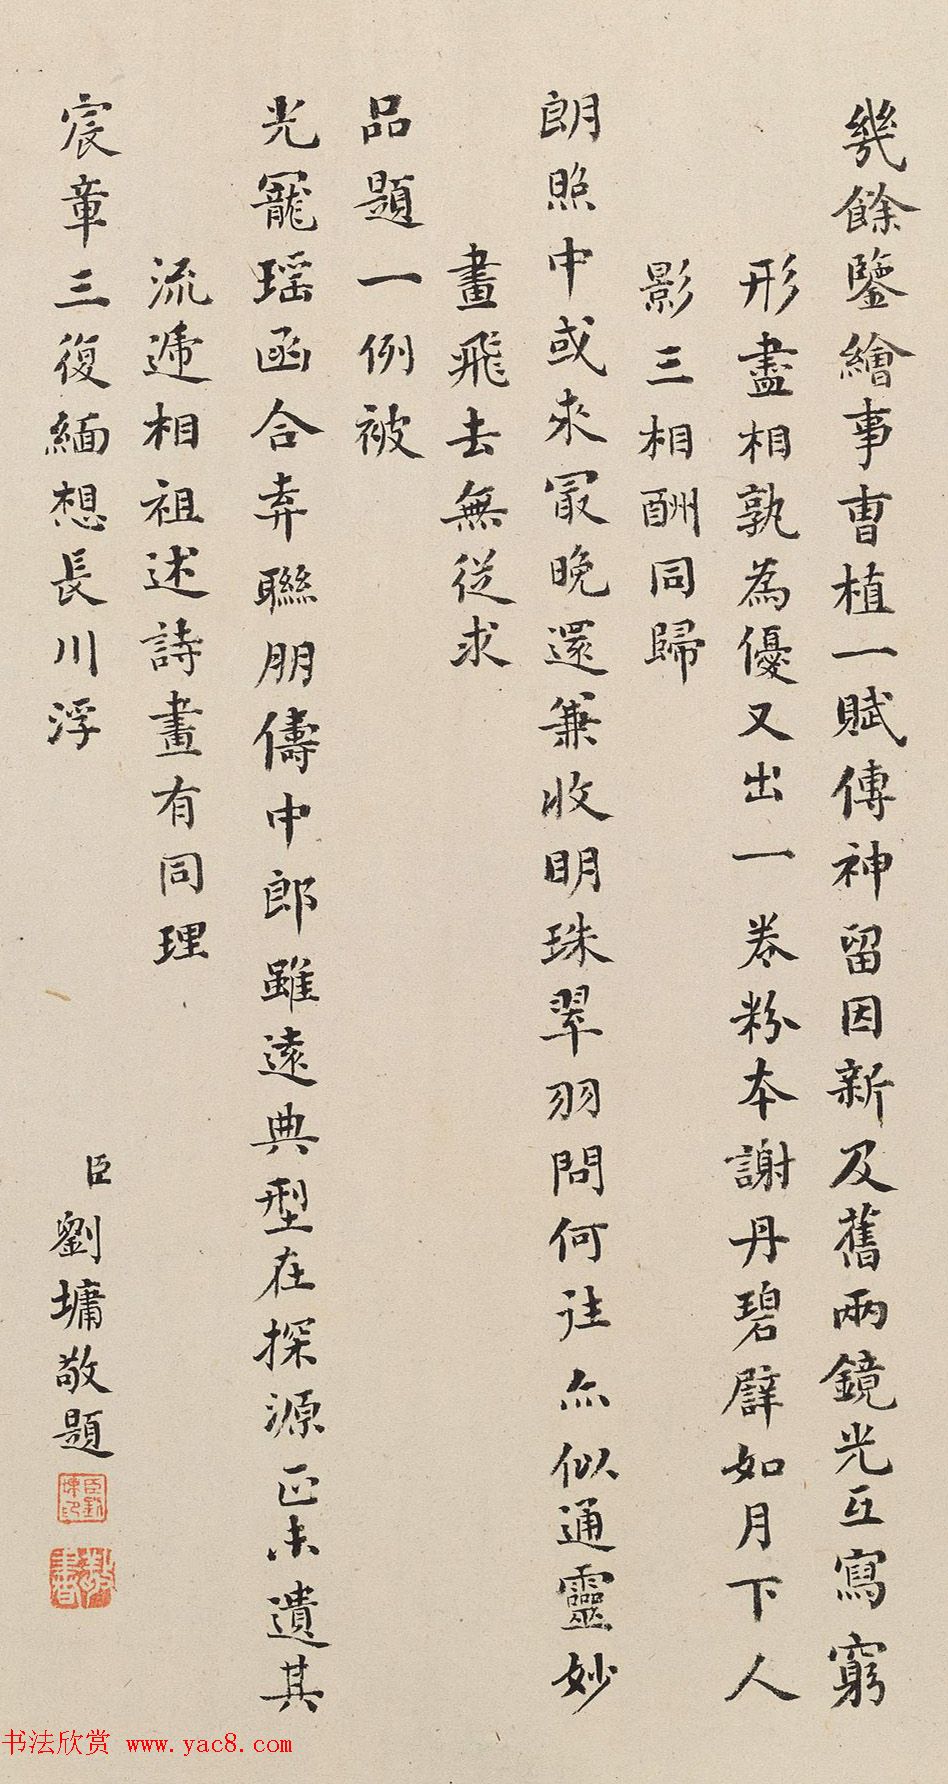 幾餘鑒繪事曹植一賦傳神留因新及舊兩鏡光互寫窮
形盡相孰為優又出一卷粉本謝丹碧譬如月下人
影三相酬同歸
朗照中或來冣晚還兼收明珠翠羽問何往亦似通靈妙
畫飛去無從求
品題一例被
光寵瑶函合弆聯朋儔中郎雖遠典型在探源正未遺其
流遞相祖述詩畫有同理
宸章三復緬想長川浮
臣劉墉敬題
臣劉墉印
敬書
书法欣赏 www.yac8.com